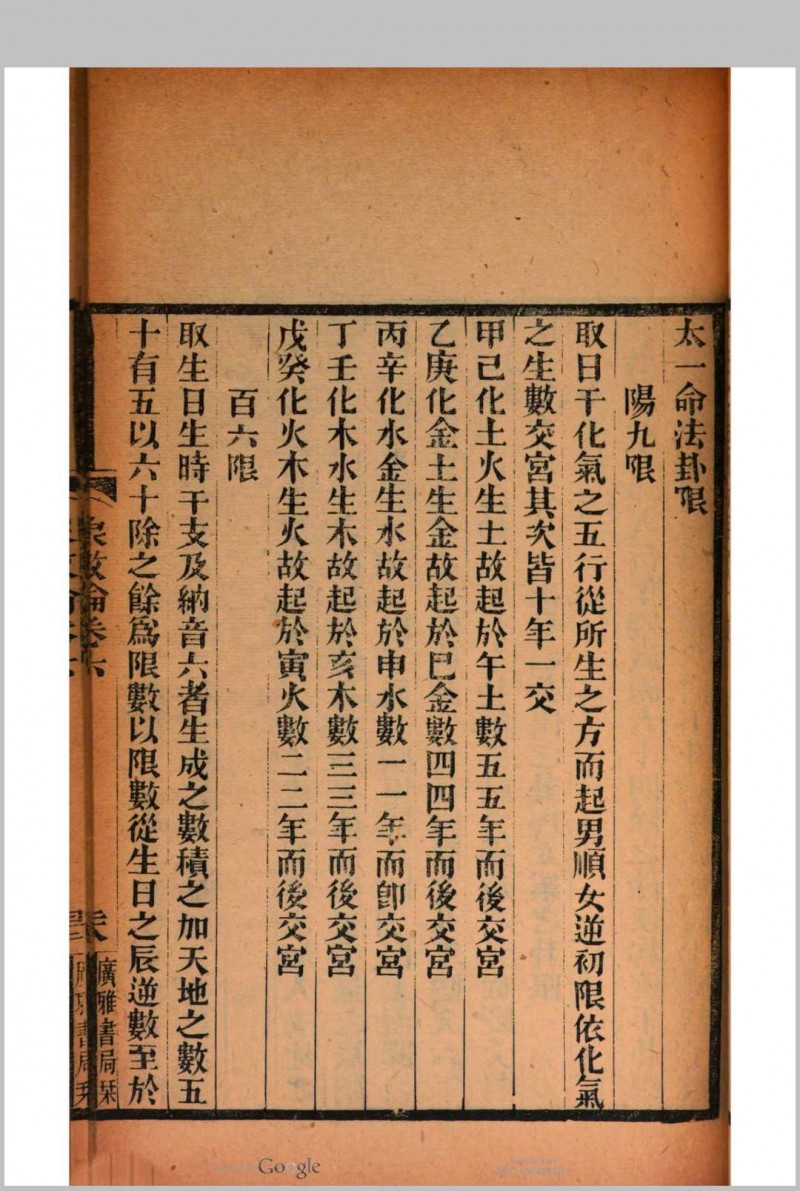 太一命法卦限
陽九限
取日干化氣之五行從所生之方而起男順女逆初限依化氣
之生數交宮其次皆十年一交
甲己化土火生土故起於午土數五五年而後交宮
乙庚化金土生金故起於巳金數四四年而後交宮
丙辛化水金生水故起於申水數一一年而卽交宮
丁壬化木水生木故起於亥木數三三年而後交宮
戊癸化火木生火故起於寅火數二二年而後交宮
百六限
取生日生時干支及納音六者生成之數積之加天地之數五
十有五以六十除之餘爲限數以限數從生日之辰逆數至於
廣雅書局栞
Google